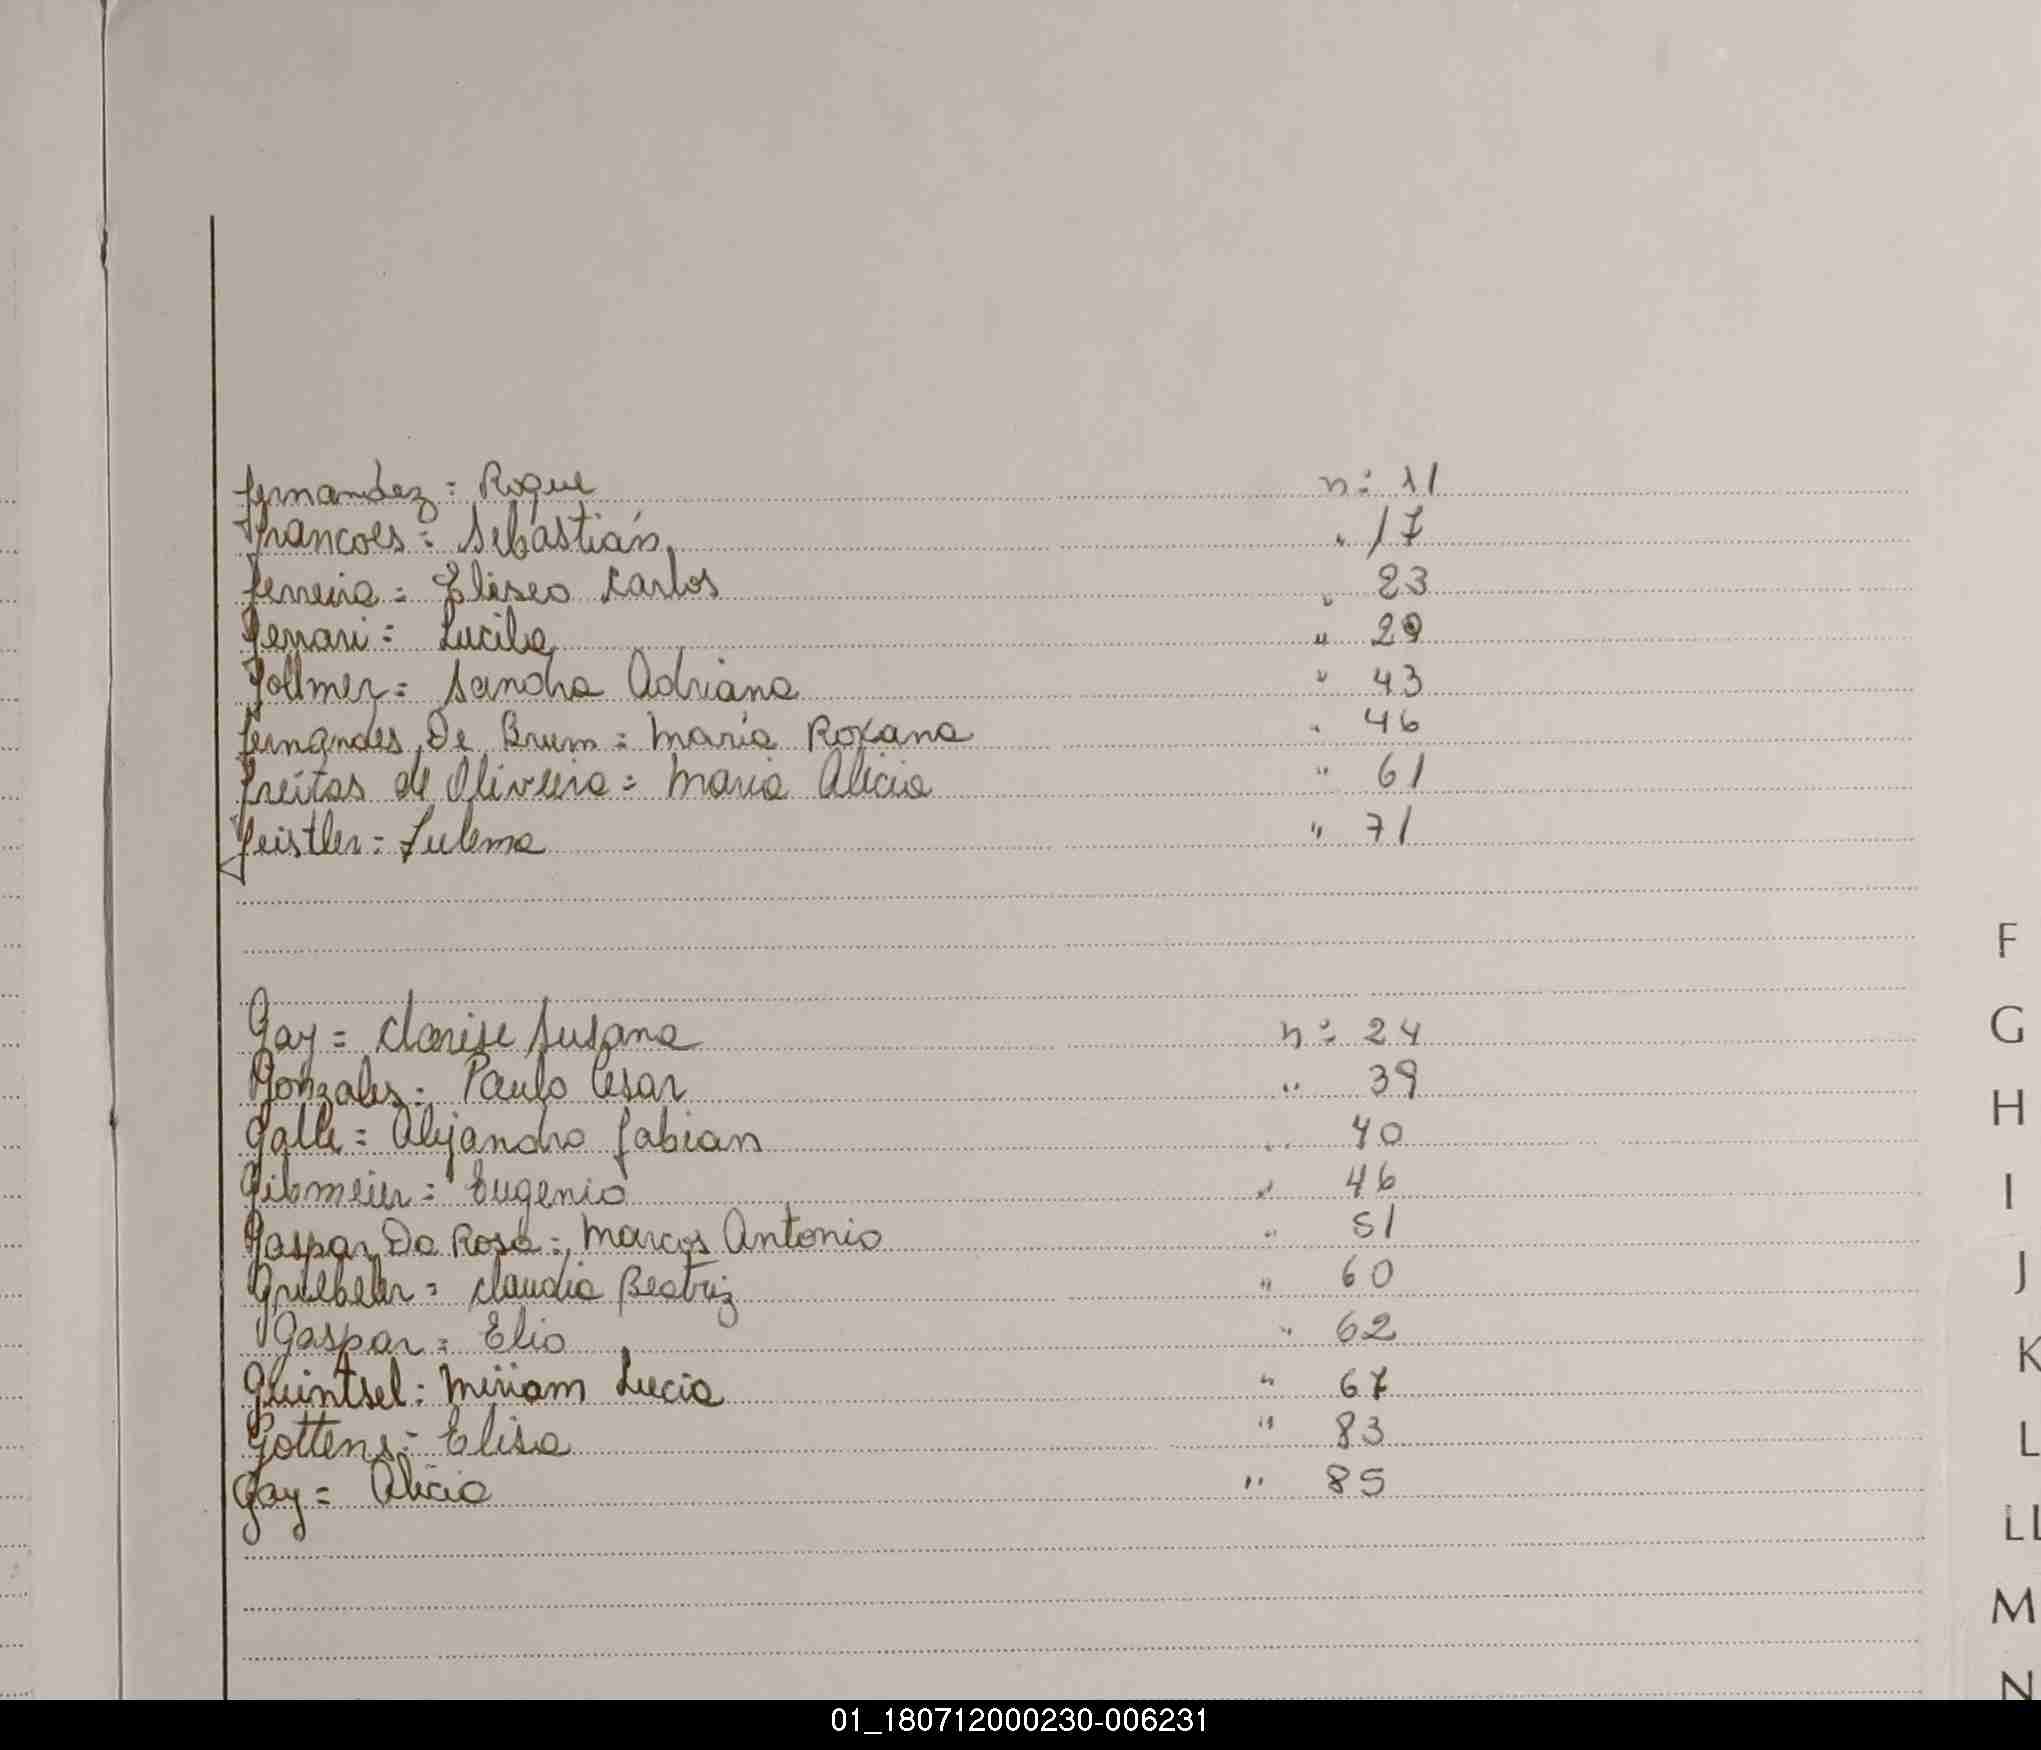 Fernandez = Roque n: 11
Francoes = Sebastián " 17
Ferreira = Eliseo Carlos " 23
Ferrari = Lucila " 29
Follmer = Sandra Adriana " 43
Fernandes De Brum = María Roxana " 46
Freitas de Oliveira = Maria Alicia " 61
Feistler = Zulema " 71
F
Gay = Clarise Susana n: 24
G
Gonzales = Paulo Cesar " 39
H
Galle = Alejandro Fabian " 40
Gibmeier = Eugenio " 46
I
Gaspar Da Rosa = Marcos Antonio " 51
J
Gruebeler = Claudia Beatriz " 60
Gaspar = Elio " 62
K
Guintsel = Miriam Lucia " 67
L
Gottens = Elisa " 83
Gay = Alicia " 85
LL
M
N
01_180712000230-006231